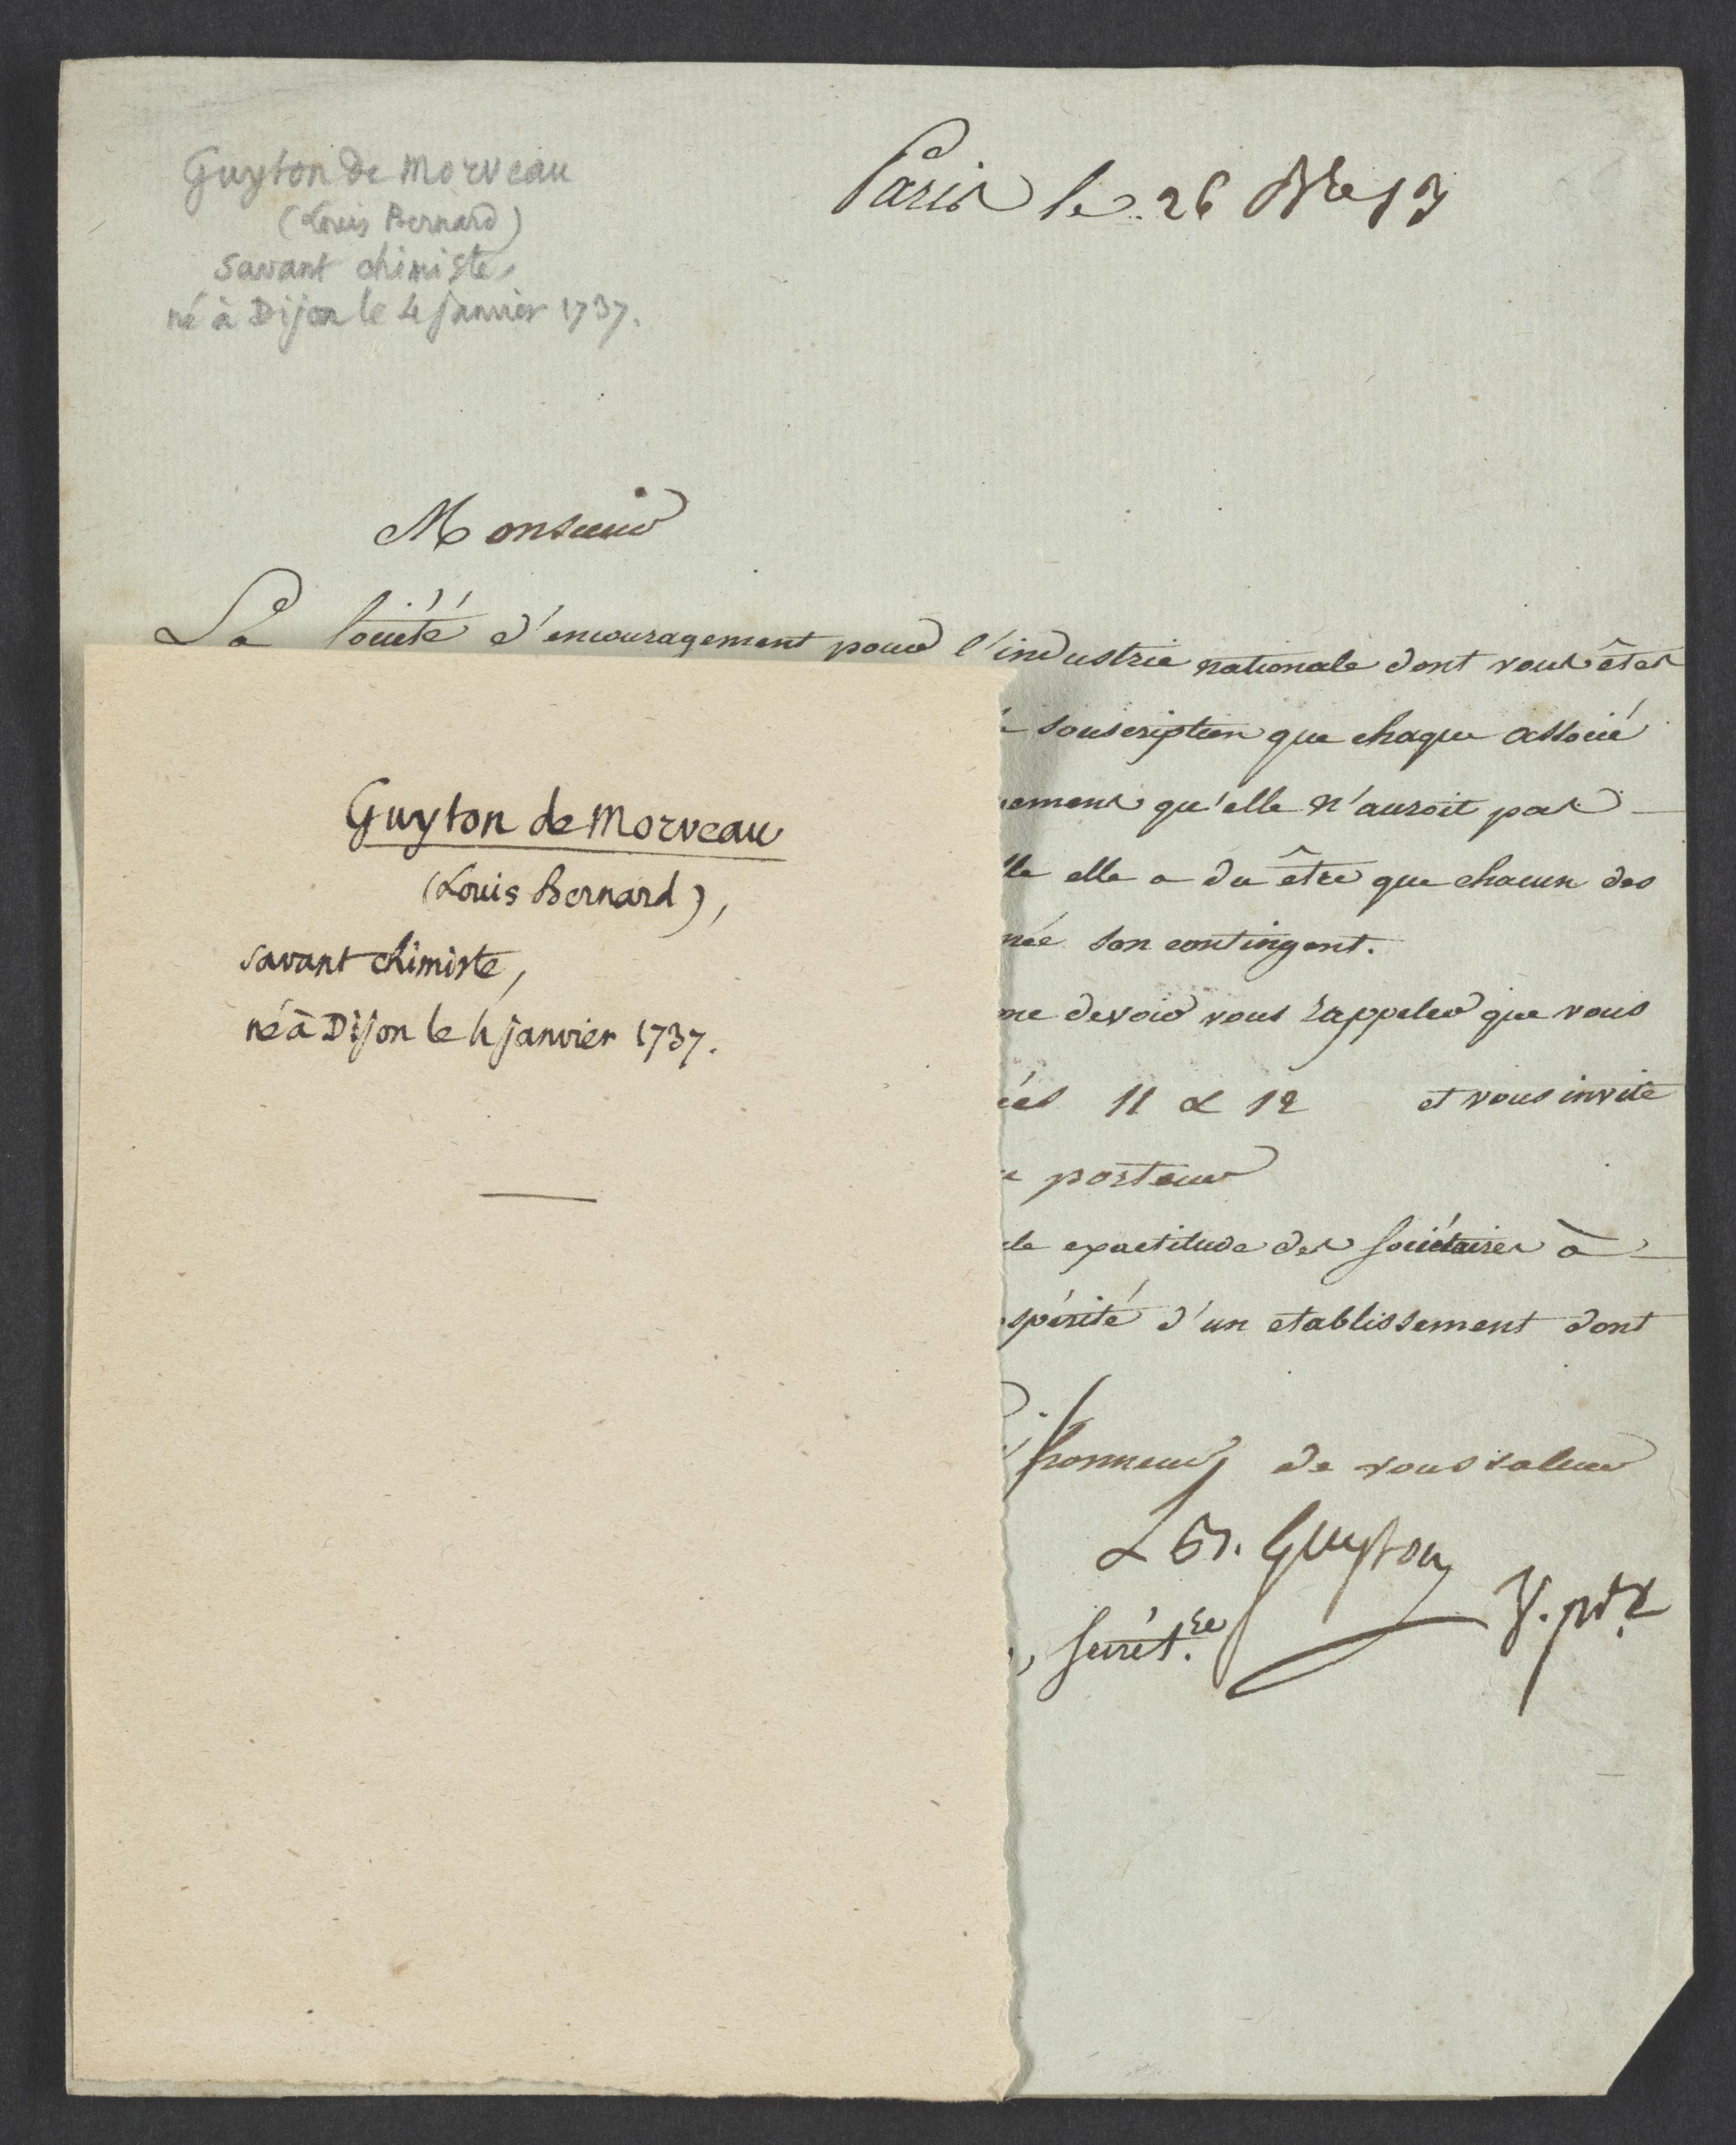 Guyton de Morveau
(Louis Bernard)
savant chimiste
né à Dijon le 4 janvier 1737.
Paris le 26 13
Monsieur
La Société d'encouragement pour l'industrie nationale dont vous êtes
souscription que chaque associé
qu'elle n'auroit pas
elle a du être que chacun des
son contingent.
devoir vous rappeler que vous
11 & 12 et vous invite
porteur
exactitude des Sociétaires à
d'un etablissement dont
honneur de vous saluer
L B. Guyton
V. pdt
Secrét.re
Guyton de Morveau
(Louis Bernard),
savant chimiste,
né à Dijon le 4 janvier 1737.